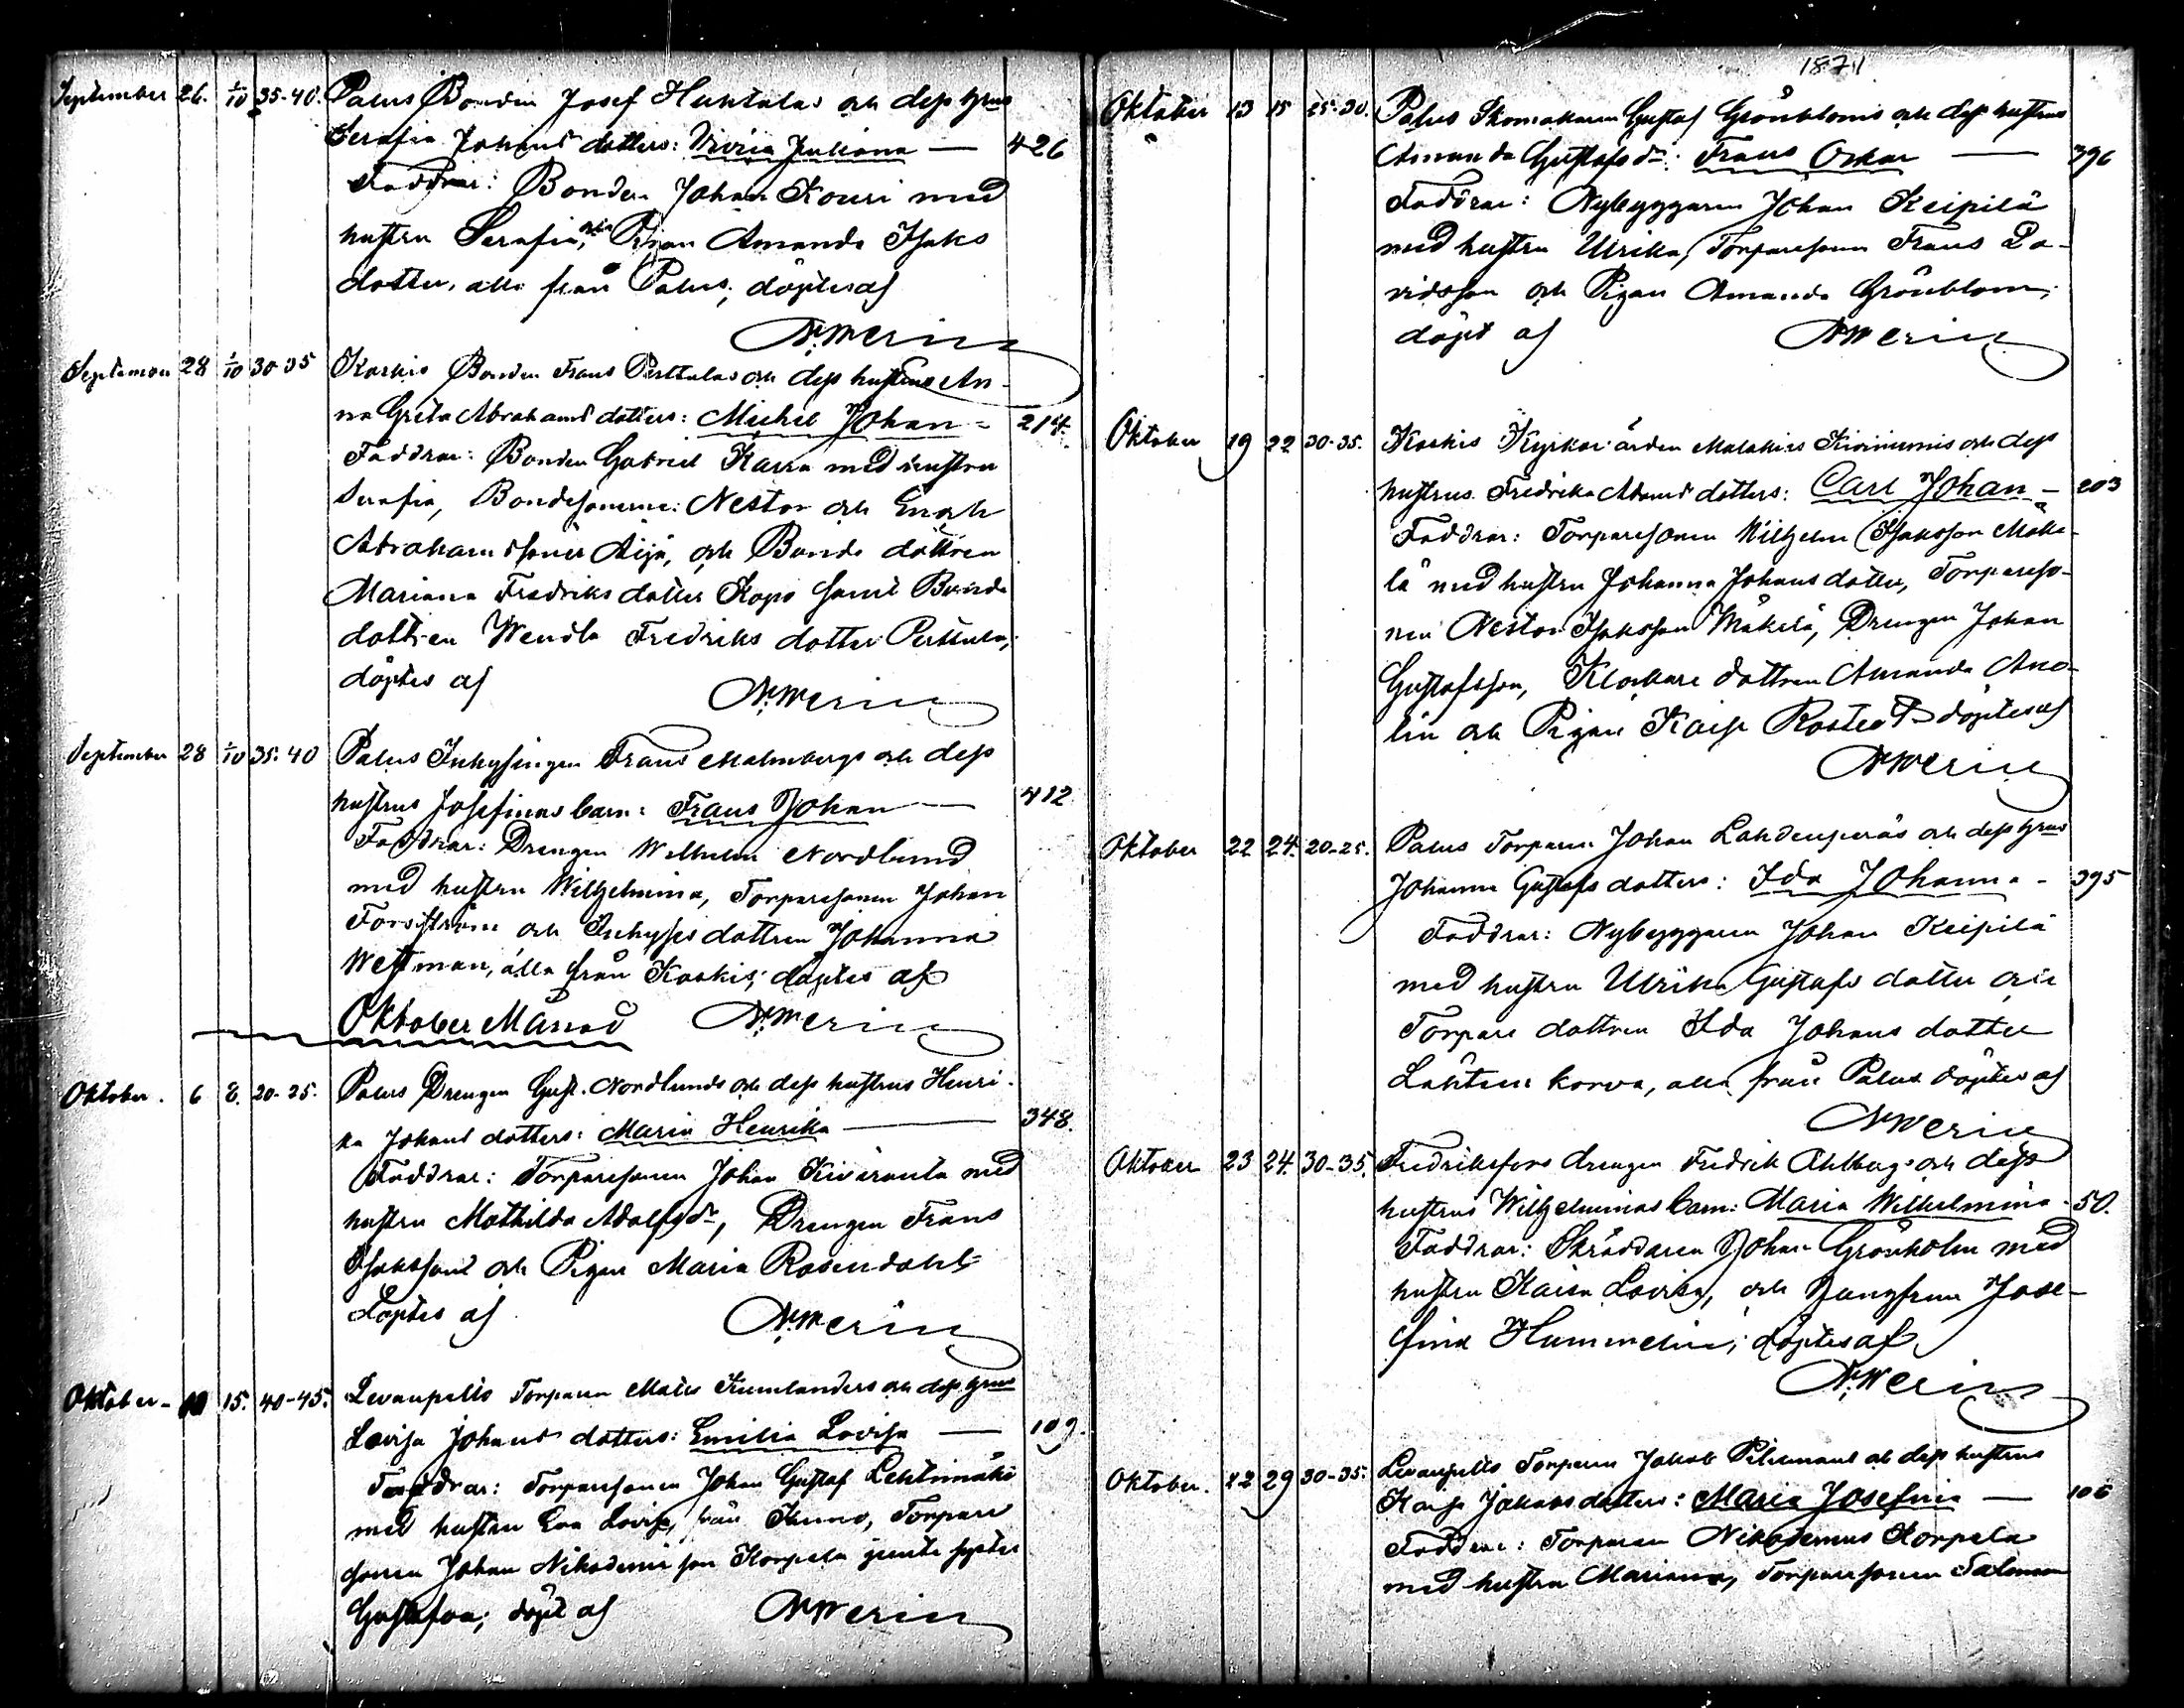 September 26. 1/10 35-40. Palus Bonden Josef Huhtalas och dess hrus
Serafia Johans dotters: Viviia Juliana — 426
Faddrar: Bonden Johan Kouri med
hustru Serafia, och Pigan Amanda Isaks
dotter, alla från Palus; döptes af
N. Merin
September 28 1/10 30-35 Koskis Bonden Frans Perttulas och dess hustrus An-
na Greta Abrahams dotters: Michel Johan - 214.
Faddrar: Bonden Gabriel Karra med hustru
Serafia, Bondesönerne: Nestor och Enok
Abrahams söner Äijä, och Bonde dottren
Mariana Fredriks dotter Kopo samt Bonde
dottren Wendla Fredriks dotter Perttula;
döptes af N. Merin
September 28 1/10 35-40 Palus Inhysingen Frans Malmbergs och dess
hustrus Josefinas barn: Frans Johan — 412
Faddrar: Drengen Wilhelm Nordlund
med hustru Wilhelmina, Torparesonen Johan
Forsström och Inhyses dottren Johanna
Westman, alla från Koskis; döptes af
Oktober Månad N. Merin
Oktober. 6 8. 20-25. Palus Drengen Gust. Nordlunds och dess hustrus Henri-
ka Johans dotters: Maria Henrika — 348.
Faddrar: Torparesonen Johan Kiviranta med
hustru Mathilda Adolfsdr, Drengen Frans
Isaksson och Pigan Maria Rosendahl
döptes af N. Merin
Oktober - 10 15. 40-45. Levanpelto Torparen Matts Kumlanders och dess hrus
Lovisa Johans dotters: Emilia Lovisa — 109.
Faddrar: Torparesonen Johan Gustaf Lehtimäki
med hustru Eva Lovisa, från Kuno, Torpare
sonen Johan Nikodemus son Korpela jemte syster
Gustafva; döpt af N. Merin
1871
Oktober 13 15 25-30. Palus Skomakaren Gustaf Grönbloms och dess hustrus
Amanda Gustafs dr: Frans Oskar — 396
Faddrar: Nybyggaren Johan Keipilä
med hustru Ulrika, Torparesonen Frans Da-
vidsson och Pigan Amanda Grönblom;
döpt af N. Merin
Oktober 19 22 30-35. Koskis Kyrkovärden Malakias Kiviniemis och dess
hustrus Fredrika Adams dotters: Carl Johan — 203
Faddrar: Torparesonen Wilhelm Isaksson Mäke-
lä med hustru Johanna Johans dotter, Torpareso-
nen Nestor Isaksson Mäkelä, Drengen Johan
Gustafsson, Klockare dottren Amanda Ano-
lin och Pigan Kaisa Rostedt döptes af
N. Merin
Oktober 22 24. 20-25. Palus Torparen Johan Lahdenperäs och dess hrus
Johanna Gustafs dotters: Ida Johanna - 395
Faddrar: Nybyggaren Johan Keipilä
med hustru Ulrika Gustafs dotter och
Torpare dottren Ida Johans dotter
Lähteen korva, alla från Palus döptes af
N. Merin
Oktober 23 24. 30-35. Fredriksfors drengen Fredrik Ahlbergs och dess
hustrus Wilhelminas barn: Maria Wilhelmina - 50.
Faddrar: Skräddaren Johan Grönholm med
hustru Kaisa Lovisa, och Jungfrun Jose-
fina Hummelin; döptes af
N. Merin
Oktober. 22 29 30-35. Levanpelto Torparen Jakob Pihlmans och dess hustrus
Kaisa Jakobs dotters: Maria Josefina — 106
Faddrar: Torparen Nikodemus Korpela
med hustru Mariana, Torparesonen Salomon